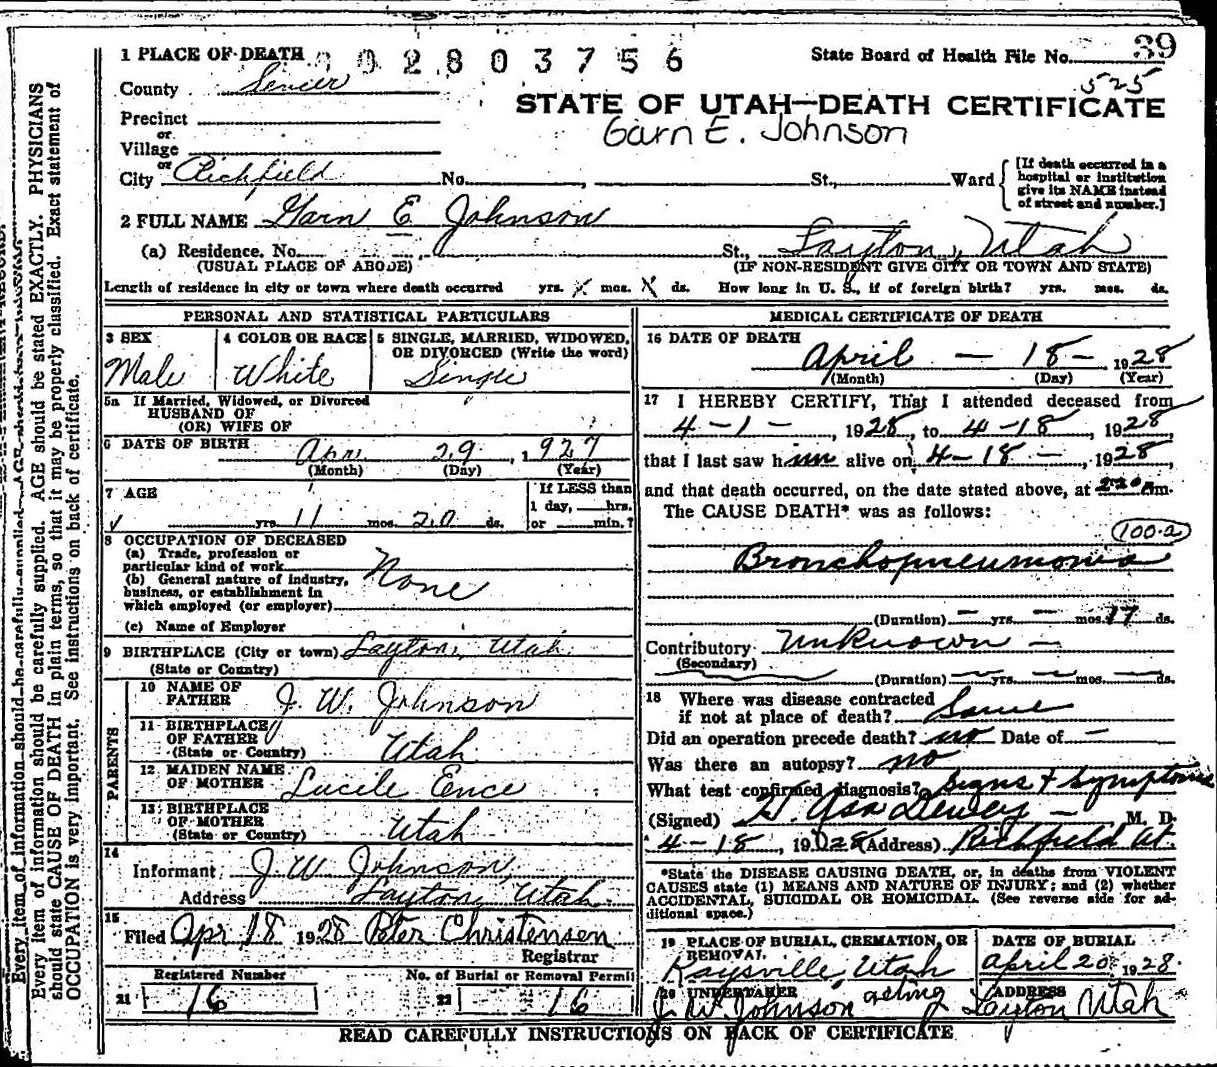 1 PLACE OF DEATH 002803756 State Board of Health File No. 39
525
County Sevier
STATE OF UTAH—DEATH CERTIFICATE
Garn E. Johnson
Precinct
or
Village
or
City Richfield No. , St., Ward
[If death occurred in a
hospital or institution
give its NAME instead
of street and number.]
2 FULL NAME Garn E. Johnson
(a) Residence. No. , St., Layton, Utah
(USUAL PLACE OF ABODE) (IF NON-RESIDENT GIVE CITY OR TOWN AND STATE)
Length of residence in city or town where death occurred yrs. mos. ds. How long in U. S., if of foreign birth? yrs. mos. ds.
PERSONAL AND STATISTICAL PARTICULARS
3 SEX
Male
4 COLOR OR RACE
White
5 SINGLE, MARRIED, WIDOWED,
OR DIVORCED (Write the word)
Single
5a If Married, Widowed, or Divorced
HUSBAND OF
(OR) WIFE OF
6 DATE OF BIRTH Apr. 29, 1927
(Month) (Day) (Year)
7 AGE
yrs. 11 mos. 20 ds.
If LESS than
1 day, hrs.
or min.?
8 OCCUPATION OF DECEASED
(a) Trade, profession or
particular kind of work
(b) General nature of industry,
business, or establishment in
which employed (or employer)
None
(c) Name of Employer
9 BIRTHPLACE (City or town) Layton, Utah
(State or Country)
PARENTS
10 NAME OF
FATHER J. W. Johnson
11 BIRTHPLACE
OF FATHER
(State or Country) Utah
12 MAIDEN NAME
OF MOTHER Lucile Ence
13 BIRTHPLACE
OF MOTHER
(State or Country) Utah
14
Informant J. W. Johnson,
Address Layton, Utah.
15
Filed Apr 18 1928 Peter Christensen
Registrar
Registered Number
21 16
No. of Burial or Removal Permit
22 16
MEDICAL CERTIFICATE OF DEATH
16 DATE OF DEATH
April — 18 — 1928
(Month) (Day) (Year)
17 I HEREBY CERTIFY, That I attended deceased from
4-1-, 1928, to 4-18, 1928,
that I last saw him alive on 4-18-, 1928,
and that death occurred, on the date stated above, at m.
The CAUSE DEATH* was as follows:
100-a
Bronchopneumonia
(Duration) — yrs. — mos. 17 ds.
Contributory Unknown —
(Secondary)
(Duration) — yrs. — mos. — ds.
18 Where was disease contracted
if not at place of death? Same
Did an operation precede death? no Date of —
Was there an autopsy? no
What test confirmed diagnosis? Signs + Symptoms
(Signed) H. Asa Dewey — M. D.
4-18, 1928 (Address) Richfield Ut.
*State the DISEASE CAUSING DEATH, or, in deaths from VIOLENT
CAUSES state (1) MEANS AND NATURE OF INJURY; and (2) whether
ACCIDENTAL, SUICIDAL OR HOMICIDAL. (See reverse side for ad-
ditional space.)
19 PLACE OF BURIAL, CREMATION, OR
REMOVAL.
Kaysville, Utah
DATE OF BURIAL
April 20, 1928.
20 UNDERTAKER
J. W. Johnson acting
ADDRESS
Layton Utah
READ CAREFULLY INSTRUCTIONS ON BACK OF CERTIFICATE
Every item of information should be carefully supplied. AGE should be stated EXACTLY. PHYSICIANS
should state CAUSE OF DEATH in plain terms, so that it may be properly classified. Exact statement of
OCCUPATION is very important. See instructions on back of certificate.